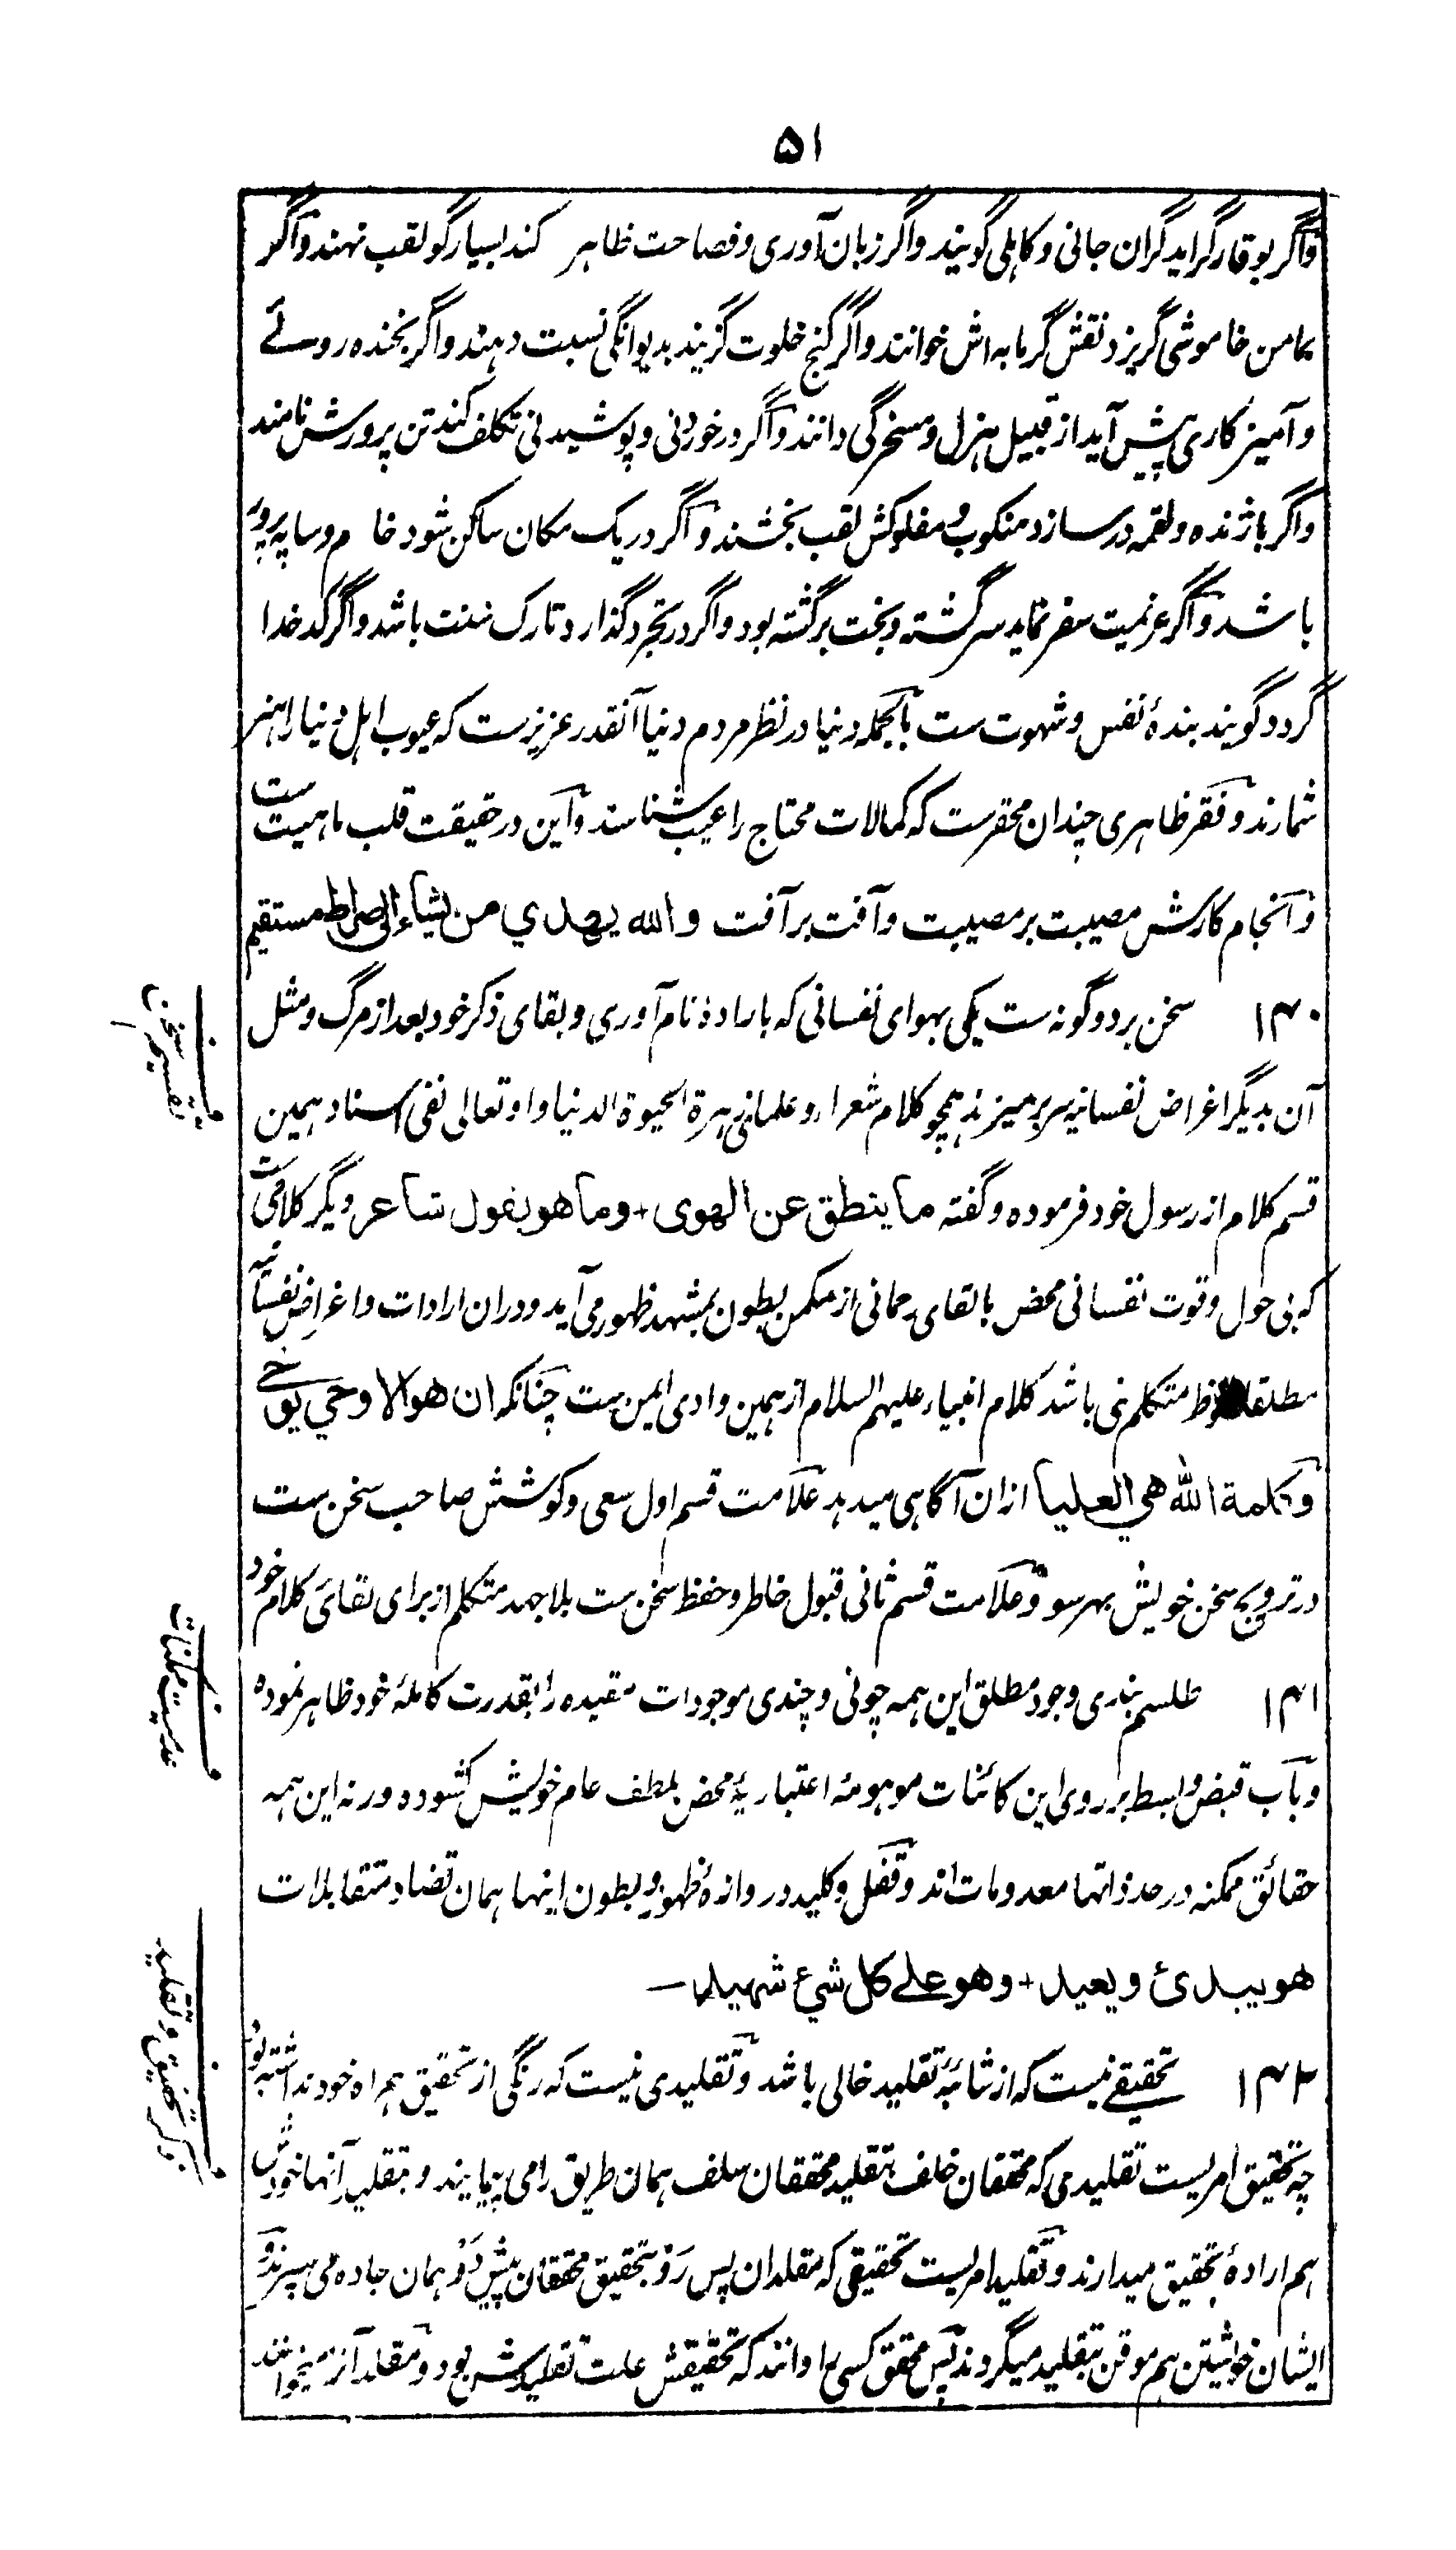 ۵۱
واگر بوقار گراید گران جانی و کاہلی گویند واگر زبان آوری و فصاحت ظاہر کند بسیار گو لقب نہند واگر
بکامن خاموشی گریزد نقش گرمابہ اش خوانند واگر کنج خلوت گزیند بدیوانگی نسبت دہند واگر بخندہ روئے
و آمیز کاری پیش آید از قبیل ہزل و مسخرگی دانند واگر در خوردنی و پوشیدنی تکلف کند تن پرورش نامند
واگر با ژندہ و لقمہ در سازد منکوب و مفلوکش لقب بخشند واگر در یک مکان ساکن شود خام و سایہ پرور
باشد واگر عزیمت سفر نماید سرگشتہ و بخت برگشتہ بود واگر در تجرد گذارد تارک سنت باشد واگر کدخدا
گردد گویند بندۂ نفس و شہوت ست بالجملہ دنیا در نظر مردم دنیا آنقدر عزیز ست کہ عیوب اہل دنیا را ہنر
شمارند و فقر ظاہری چندان محقر ست کہ کمالات محتاج را عیب شناسند و این در حقیقت قلب ماہیت ست
و انجام کارش مصیبت بر مصیبت و آفت بر آفت والله یهدي من یشاء إلی صراط مستقیم
۱۴۰ سخن بر دو گونہ ست یکی بہوای نفسانی کہ بارادۂ نام آوری و بقای ذکر خود بعد از مرگ و مثل
آن بدیگر اغراض نفسانیہ سر بر میزند ہمچو کلام شعراء و علمای زہرة الحیوة الدنیا و او تعالی نفی اسناد ہمین
قسم کلام از رسول خود فرمودہ و گفتہ ما ینطق عن الهوی + وما هو بقول شاعر دیگر کلامی ست
کہ بی حول و قوت نفسانی محض بالقای رحمانی از مکمن بطون بمشہد ظہور می آید و دران ارادات و اغراض نفسانیہ
مطلقا ملحوظ متکلم نمی باشد کلام انبیاء علیہم السلام از ہمین وادی ایمن ست چنانکہ ان هو الا وحي یوحی
و کلمة الله هي العلیا ازان آگاہی میدہد علامت قسم اول سعی و کوشش صاحب سخن ست
در ترویج سخن خویش بہر سو و علامت قسم ثانی قبول خاطر و حفظ سخن ست بلا جہد متکلم از برای بقای کلام خود
۱۴۱ طلسم بندی وجود مطلق این ہمہ چونی و چندی موجودات مقیدہ را بقدرت کاملۂ خود ظاہر نمودہ
و باب قبض و بسط بر روی این کائنات موہومۂ اعتباریۂ محض بلطف عام خویش کشودہ ورنہ این ہمہ
حقائق ممکنہ در حد ذاتہا معدومات اند و قفل و کلید دروازۂ ظہور و بطون اینہا ہمان تضاد متقابلات
هو یبدئ ویعید + وهو علے کل شيء شهید
۱۴۲ تحقیقے نیست کہ از شائبۂ تقلید خالی باشد و تقلیدی نیست کہ رنگی از تحقیق ہمراہ خود نداشتہ بود
چہ تحقیق امریست تقلیدی کہ محققان خلف بتقلید محققان سلف ہمان طریق را می پیمایند و بتقلید آنہا خودش
ہم ارادۂ تحقیق میدارند و تقلید امریست تحقیقی کہ مقلدان پس رو بتحقیق محققان پیش رو ہمان جادہ می سپرند و
ایشان خویشتن ہم موقن بتقلید میگروند پس محقق کسی را دانند کہ تحقیقش علت تقلیدش بود و مقلد آنرا میخوانند
تقسیم سخن
عدمیت ممکنات
ذکر تحقیق و تقلید